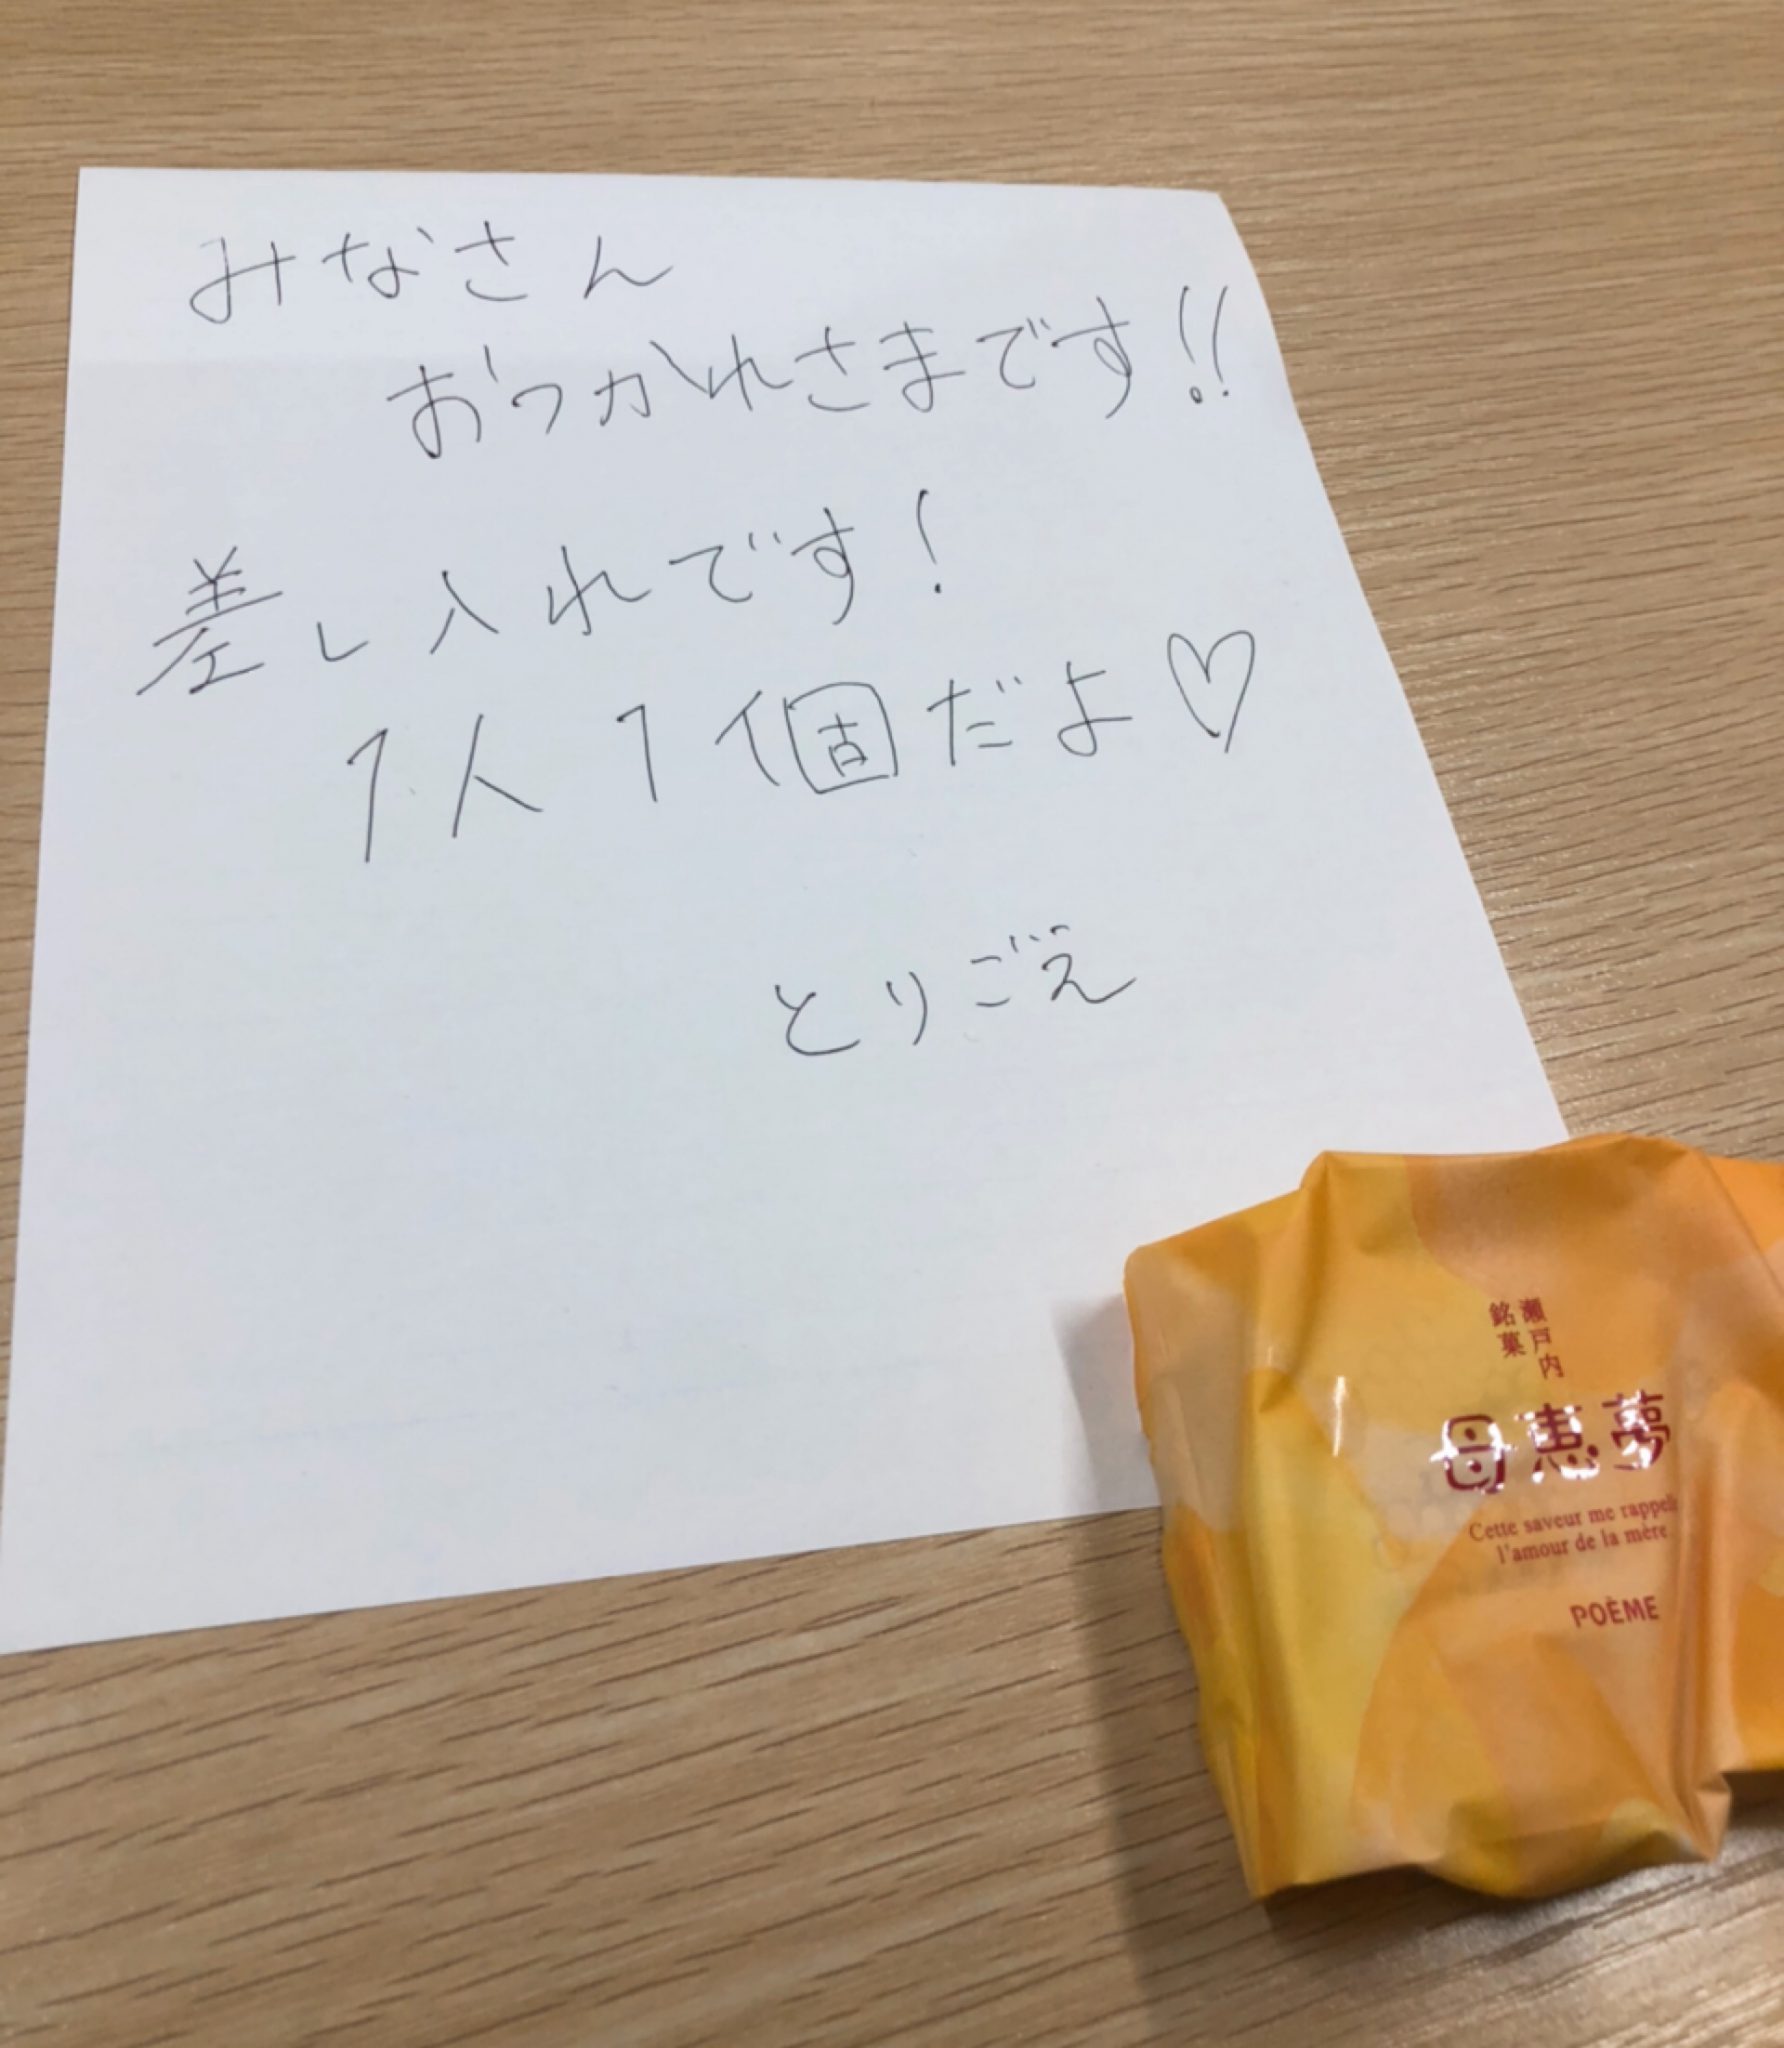 みなさん
おつかれさまです!!
差し入れです!
1人1個だよ♡
とりごえ
瀬戸内
銘菓
母恵夢
Cette saveur me rappelle
l'amour de la mère
POÈME